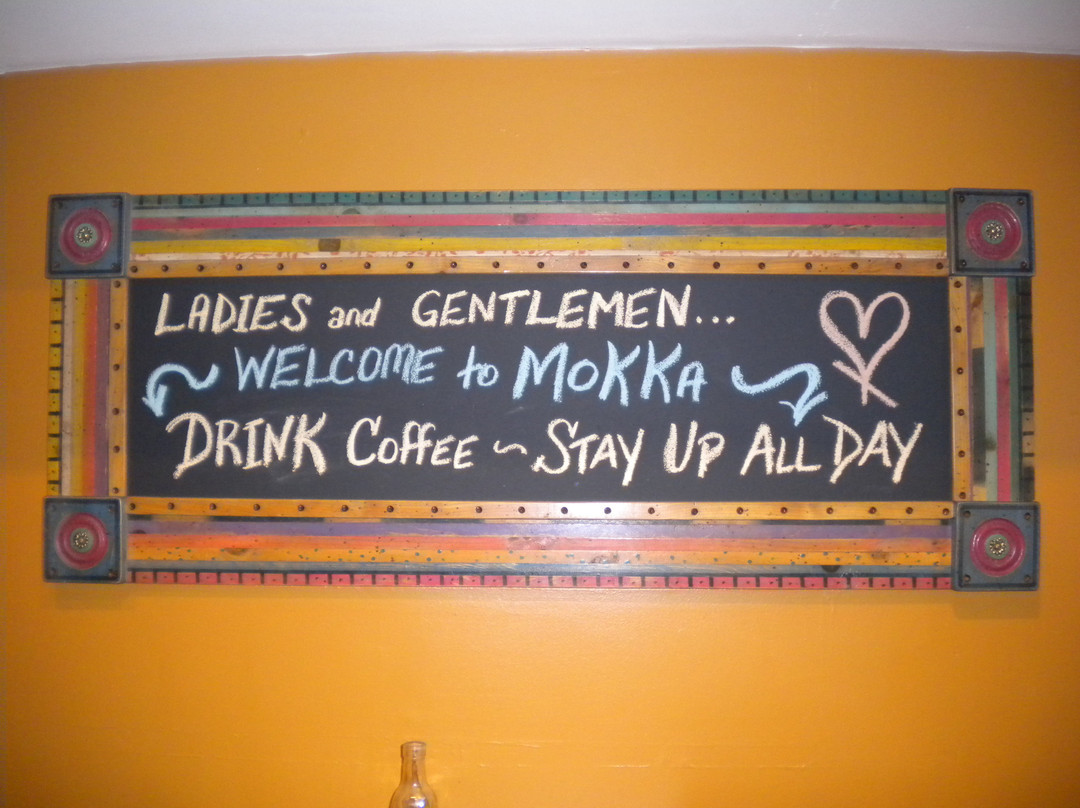 LADIES and GENTLEMEN...
WELCOME to MOKKA
DRINK COFFEE ~ STAY UP ALL DAY